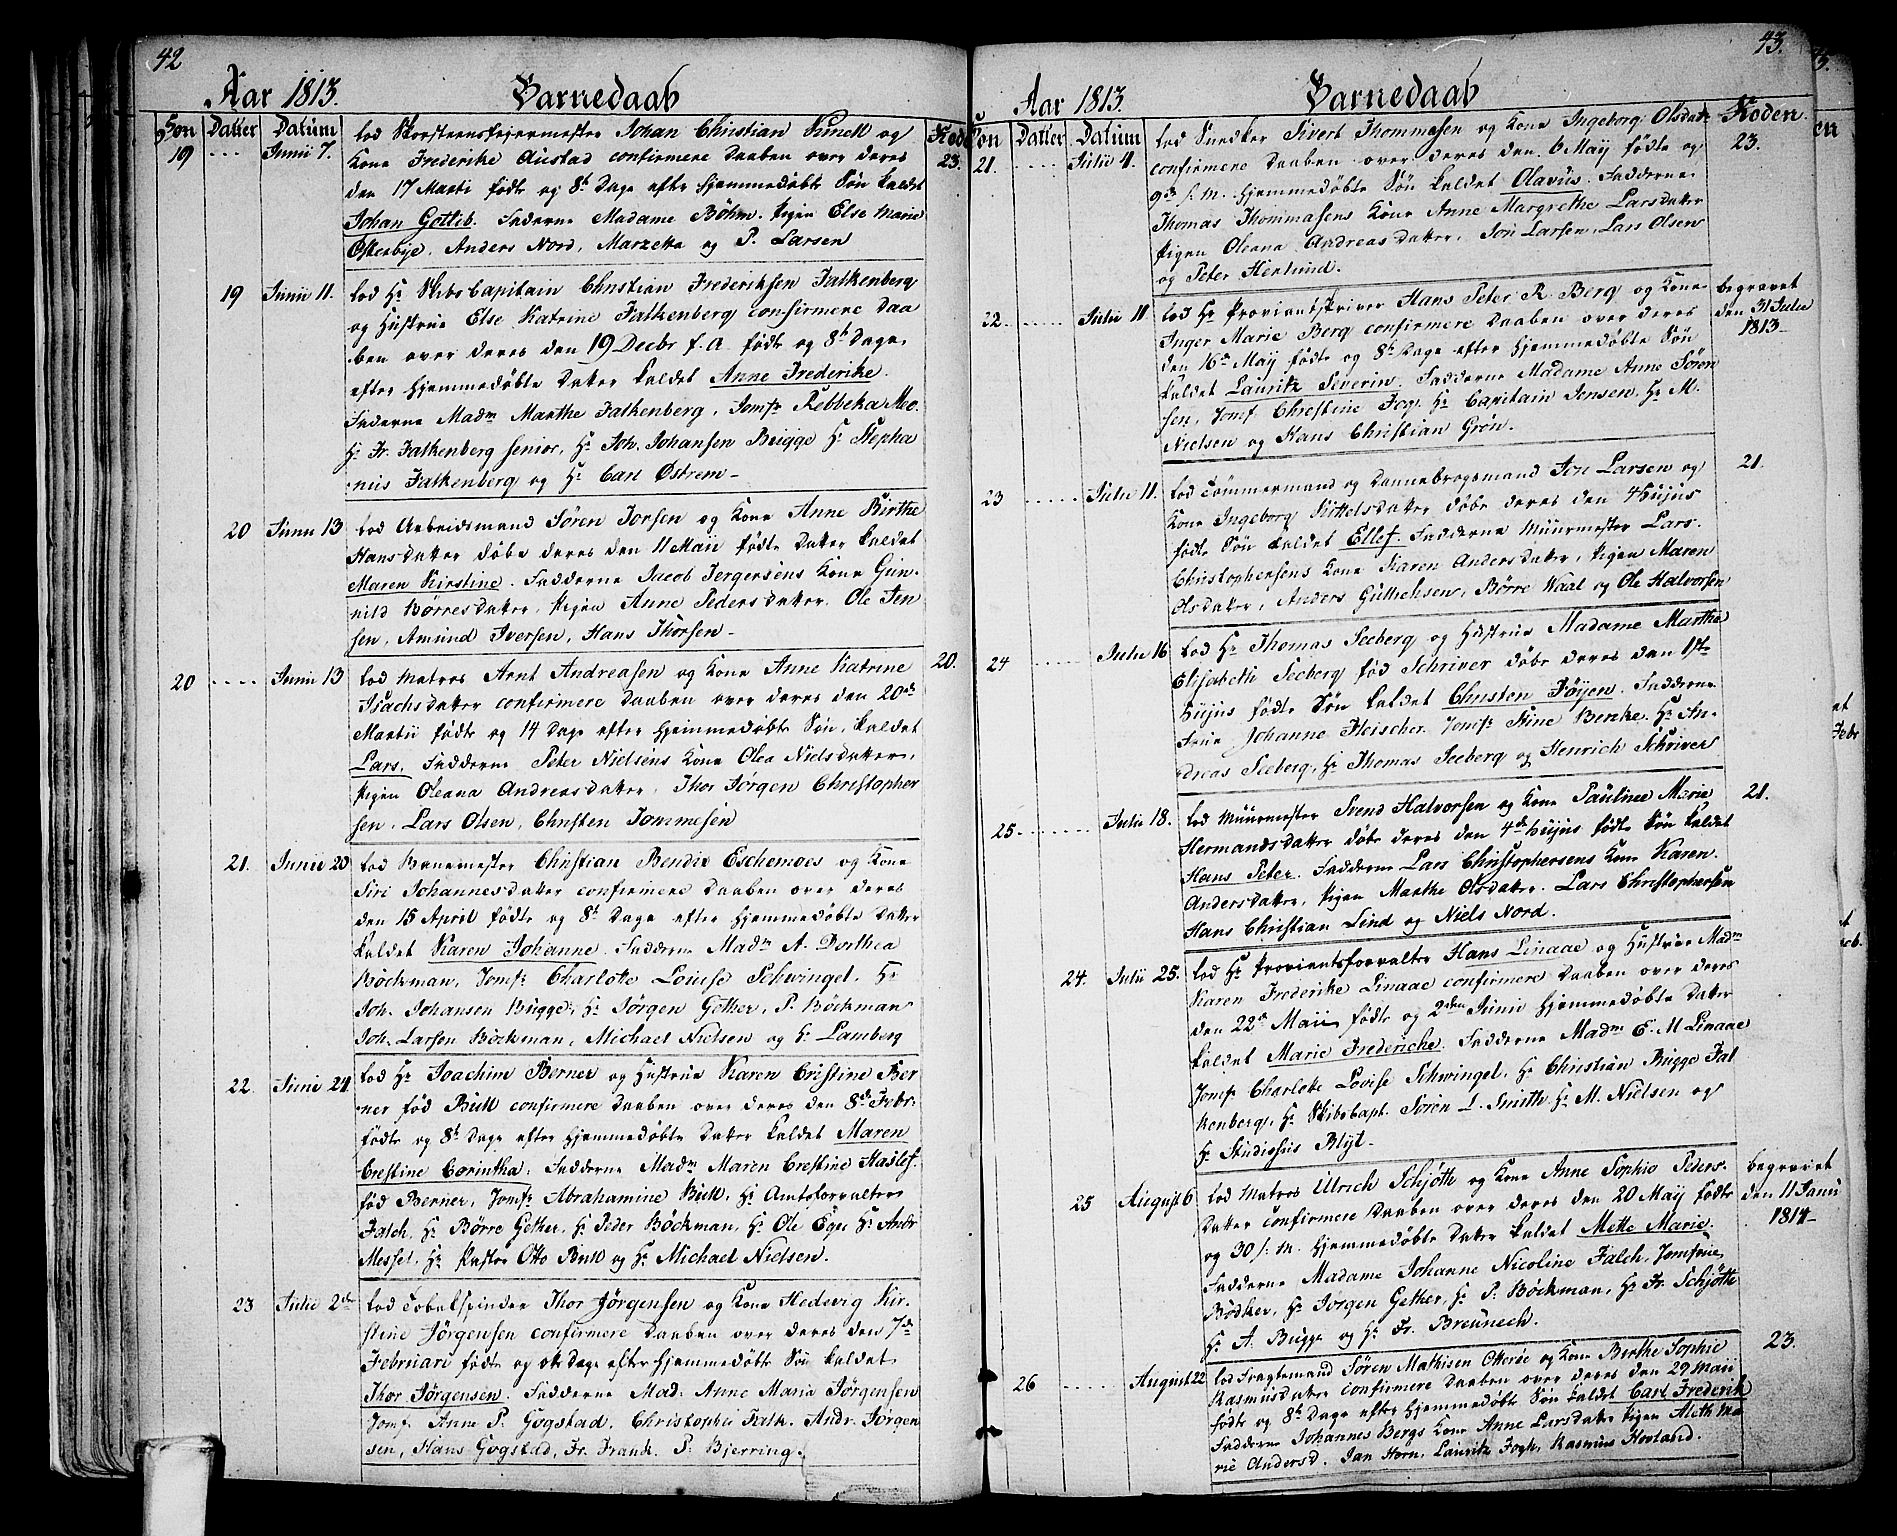 42
Aar 1813. Barnedaab
Søn Datter Datum Roden
19 Junii 7. lod Skorsteensfejermester Johan Christian Kinell og 23.
Kone Frederike Austad confirmere Daaben over deres
den 17 Marti fødte og 8t Dage efter hjemmedøbte Søn kaldet
Johan Gotlib. Fadderne Madame Bøhm. Pigen Else Marie
Østerbye, Anders Nord, Marzetta og P. Larsen
19 Junii 11. lod Hr Skibs Capitain Christian Frederiksen Falkenberg
og Hustrue Else Katrine Falkenberg confirmere Daa
ben over deres den 19 Decbr f. A. fødte og 8t Dage
efter hjemmedøbte Datter kaldet Anne Frederike.
Fadderne Madm Marthe Falkenberg, Jomfr Rebbeka Moe.
Hr Fr. Falkenberg senior, Hr Joh. Johansen Brügge Hr Stepha
nius Falkenberg og Hr Carl Østrem
20 Junii 13 lod Arbeidsmand Søren Jorsen og Kone Anne Birthe
Hansdatter døbe deres den 11 Maii fødte Datter kaldet
Maren Kirstine. Fadderne Jacob Jergersens Kone Gun-
nild Børresdatter, Pigen Anne Pedersdatter. Ole Jen
sen, Amund Iversen, Hans Thorsen
20 Junii 13 lod Matros Arnt Andreasen og Kone Anne Katrine 20.
Isachsdatter confirmere Daaben over deres den 20de
Martii fødte og 14 Dage efter hjemmedøbte Søn, kaldet
Lars. Fadderne Peter Nielsens Kone Olea Nielsdatter,
Pigen Oleana Andreasdatter, Thor Jørgen Christopher
sen, Lars Olsen, Christen Tommesen
21. Junii 20 lod Brandmester Christian Bendix Eschemoes og Kone
Siri Johannesdatter confirmere Daaben over deres
den 15 April fødte og 8t Dage efter hjemmedøbte Datter
kaldet Karen Johanne. Fadderne Madm A. Dorthea
Bøckman, Jomfr Charlotte Louise Schwingel, Hr
Joh. Johansen Bugge, Hr Jørgen Gether, P. Bøckman
Joh. Larsen Bøckman, Michael Nielsen og Hr Lamberg
22. Junii 24 lod Hr Joachim Berner og Hustrue Karen Cristine Ber
ner fød Bull confirmere Daaben over deres den 8de Febr.
fødte og 8t Dage efter hjemmedøbte Datter kaldet Maren
Crestine Corintha. Fadderne Madm Maren Crestine Haslef
fød Berner, Jomfr Abrahamine Bull, Hr Amtsforvalter
Falch, Hr Børre Gether, Hr Peder Bøckman, Hr Ole Eger Hr Andr
Messel, Hr Pastor Otto Bull og Hr Michael Nielsen.
23 Julii 2den lod Tobakspinder Thor Jørgensen og Kone Hedevig Kir-
stine Jørgensen confirmere Daaben over deres den 7de
Februari fødte og otte Dage efter hjemmedøbte Søn kaldet
Thor Jørgensen. Fadderne Mad: Anne Maria Jørgensen
Jomf Anne P. Gogstad, Christopher Falk. Andr. Jørgen
sen, Hans Gogstad, Fr. Frank. P. Bjerring.
43.
Aar 1813. Barnedaab
Søn Datter Datum Roden
21. Julii 4. lod Snedker Sivert Thommasen og Kone Ingeborg Olsdatr 23.
confirmere Daaben over deres den 6 Maij fødte og
9de s. M. hjemmedøbte Søn kaldet Olavus. Fadderne
Thomas Thommasens Kone Anne Margrethe Larsdatter
Pigen Oleana Andreasdatter, Jon Larsen, Lars Olsen
og Peter Herlund.
22. Julii 11 lod Hr Proviantskriver Hans Peter R. Berg og Kone begravet
Inger Marie Berg confirmere Daaben over deres den 31 Julii
den 16de Maij fødte og 8t Dage efter hjemmedøbte Søn 1813
kaldet Lauritz Severin. Fadderne Madame Anne Søren
sen, Jomf Christine Fog, Hr Capitain Jensen, Hr M.
Nielsen og Hans Christian Grøn.
23 Julii 11. lod Tømmermand og Dannebrogsmand Jon Larsen og 21.
Kone Ingeborg Kittelsdatter døbe deres den 4 hujus
fødte Søn kaldet Ellef. Fadderne Muurmester Lars
Christophersens Kone Karen Andersdatter, Pigen Maren
Olsdatter, Anders Gullichsen, Børre Waal og Ole Halvorsen
24 Julii 16 lod Hr Thomas Seeberg og Hustrue Madame Marthe
Elisabeth Seeberg fød Schriver døbe deres den 1ste
hujus fødte Søn kaldet Christen Føyen. Fadderne
Frue Johanne Fleischer, Jomfr Stine Benke. Hr An-
dreas Seeberg, Hr Thomas Seeberg og Henrich Schriver
25. Julii 18. lod Muurmester Svend Halvorsen og Kone Paulinee Marie 21.
Hermandsdatter døbe deres den 4de hujus fødte Søn kaldet
Hans Peter. Fadderne Lars Christophersens Kone Karen
Andersdatter, Pigen Marthe Olsdatter. Lars Christophersen
Hans Christian Lind og Niels Nord.
24. Julii 25. lod Hr Proviantsforvalter Hans Linaae og Hustrue Madm
Karen Frederike Linaae confirmere Daaben over deres
den 22de Maii fødte og 2den Junii hjemmedøbte Datter
kaldet Marie Frederiche. Fadderne Madm E. M Linaae
Jomfr Charlotte Lovise Schwingel, Hr Christian Bugge Fal
kenberg, Hr Skibscapt. Søren L. Smith. Hr M. Nielsen og
Hr Studiosus Blÿt.
25 August 6 lod Matros Ulrich Schjøth og Kone Anne Sophie Peders- begravet
datter confirmere Daaben over deres den 20 Maij fødte den 11 Janu
og 30 s. M. hjemmedøbte Datter kaldet Mette Marie. 1814
Fadderne Madame Johanne Nicoline Falch, Jomfrue
Bødker, Hr Jørgen Gether, Hr P. Bøckman, Hr Fr. Schjøtte
Hr A. Bugge og Hr Fr. Breünech.
26 August 22 lod Fragtemand Søren Mathisen Otterøe og Kone Birthe Sophie 23.
Rasmusdatter confirmere Daaben over deres den 29 Maii
fødte og 8t Dage efter hjemmedøbte Søn kaldet Carl Frederik
Fadderne Johannes Bergs Kone Anne Larsdatter Pigen Aleth Ma
rie Andersd. Jan Horn, Lauritz Fogh, Rasmus Hovland.